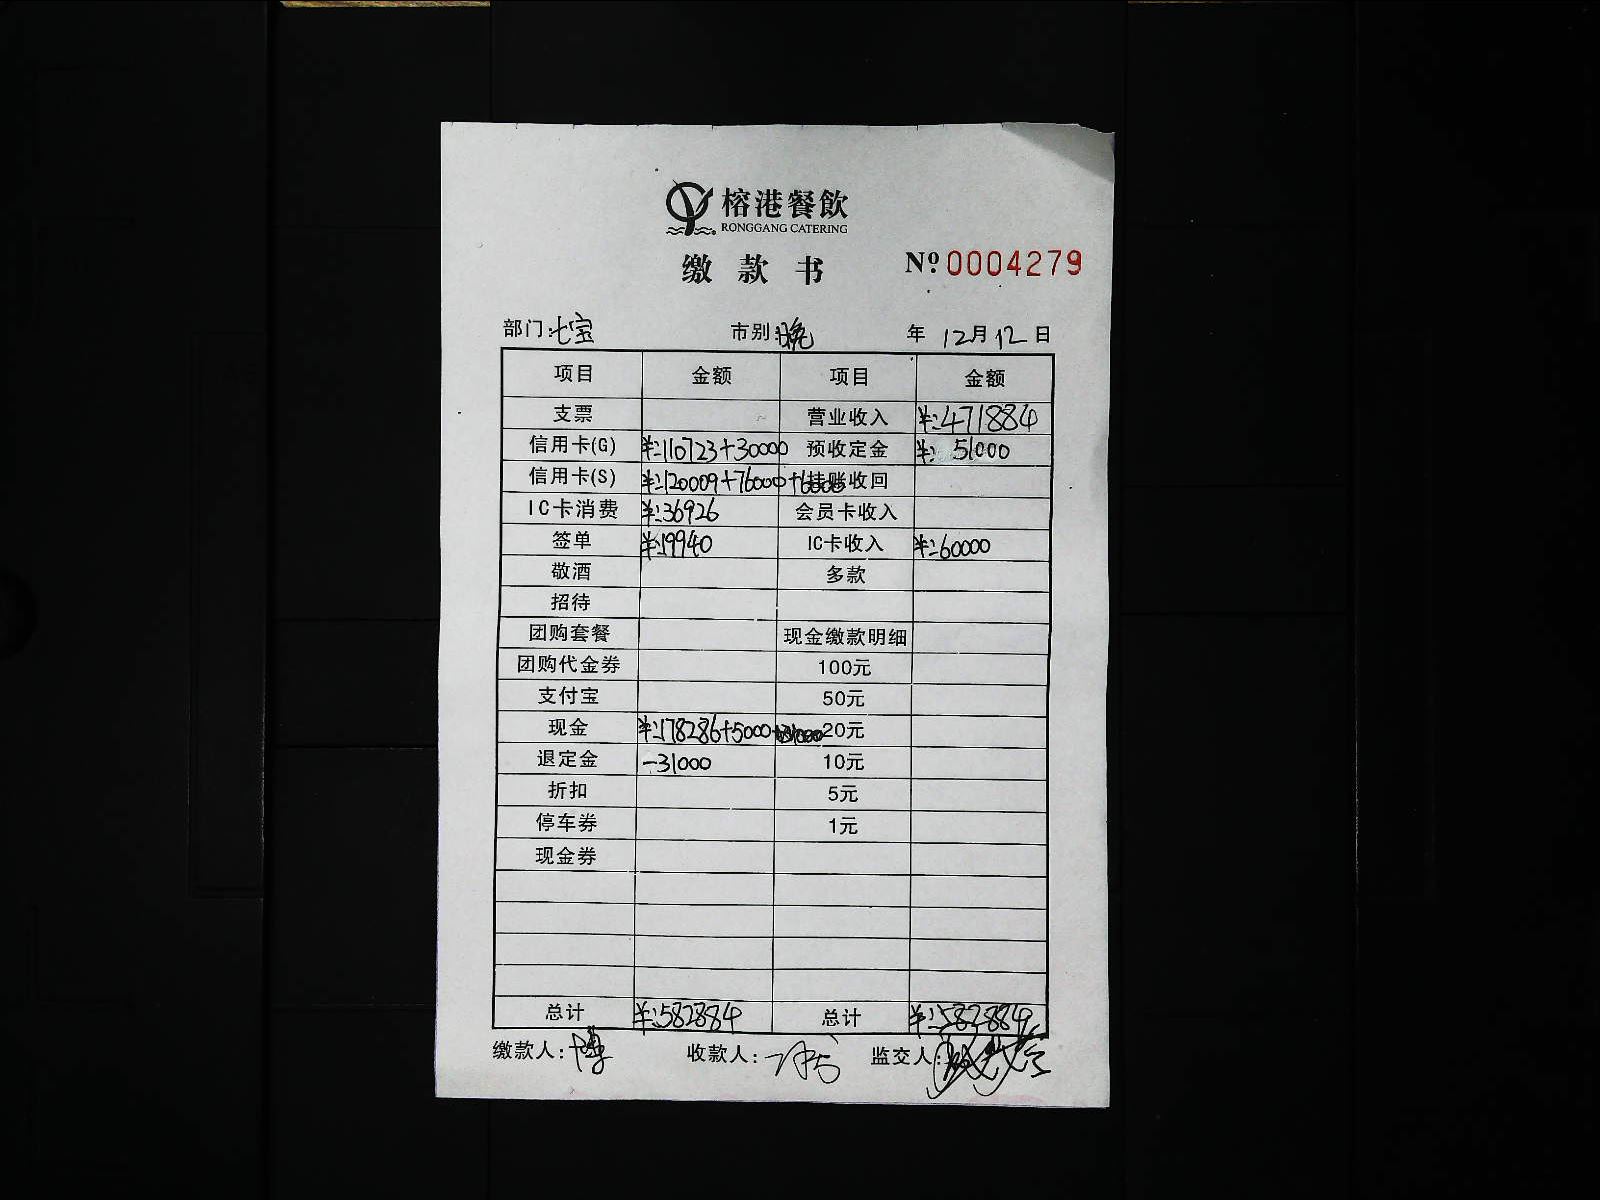 榕港餐飲
RONGGANG CATERING
缴款书 Nº 0004279
部门:七宝 市别:晚 年 12月12日
项目 金额 项目 金额
支票 营业收入 ¥:471884
信用卡(G) ¥:110723+30000 预收定金 ¥:51000
信用卡(S) ¥:120009+76000+6000 挂账收回
IC卡消费 ¥:36926 会员卡收入
签单 ¥:19940 IC卡收入 ¥:60000
敬酒 多款
招待
团购套餐 现金缴款明细
团购代金券 100元
支付宝 50元
现金 ¥:178286+5000+31000 20元
退定金 -31000 10元
折扣 5元
停车券 1元
现金券
总计 ¥:582884 总计 ¥:582884
缴款人: 收款人: 监交人: